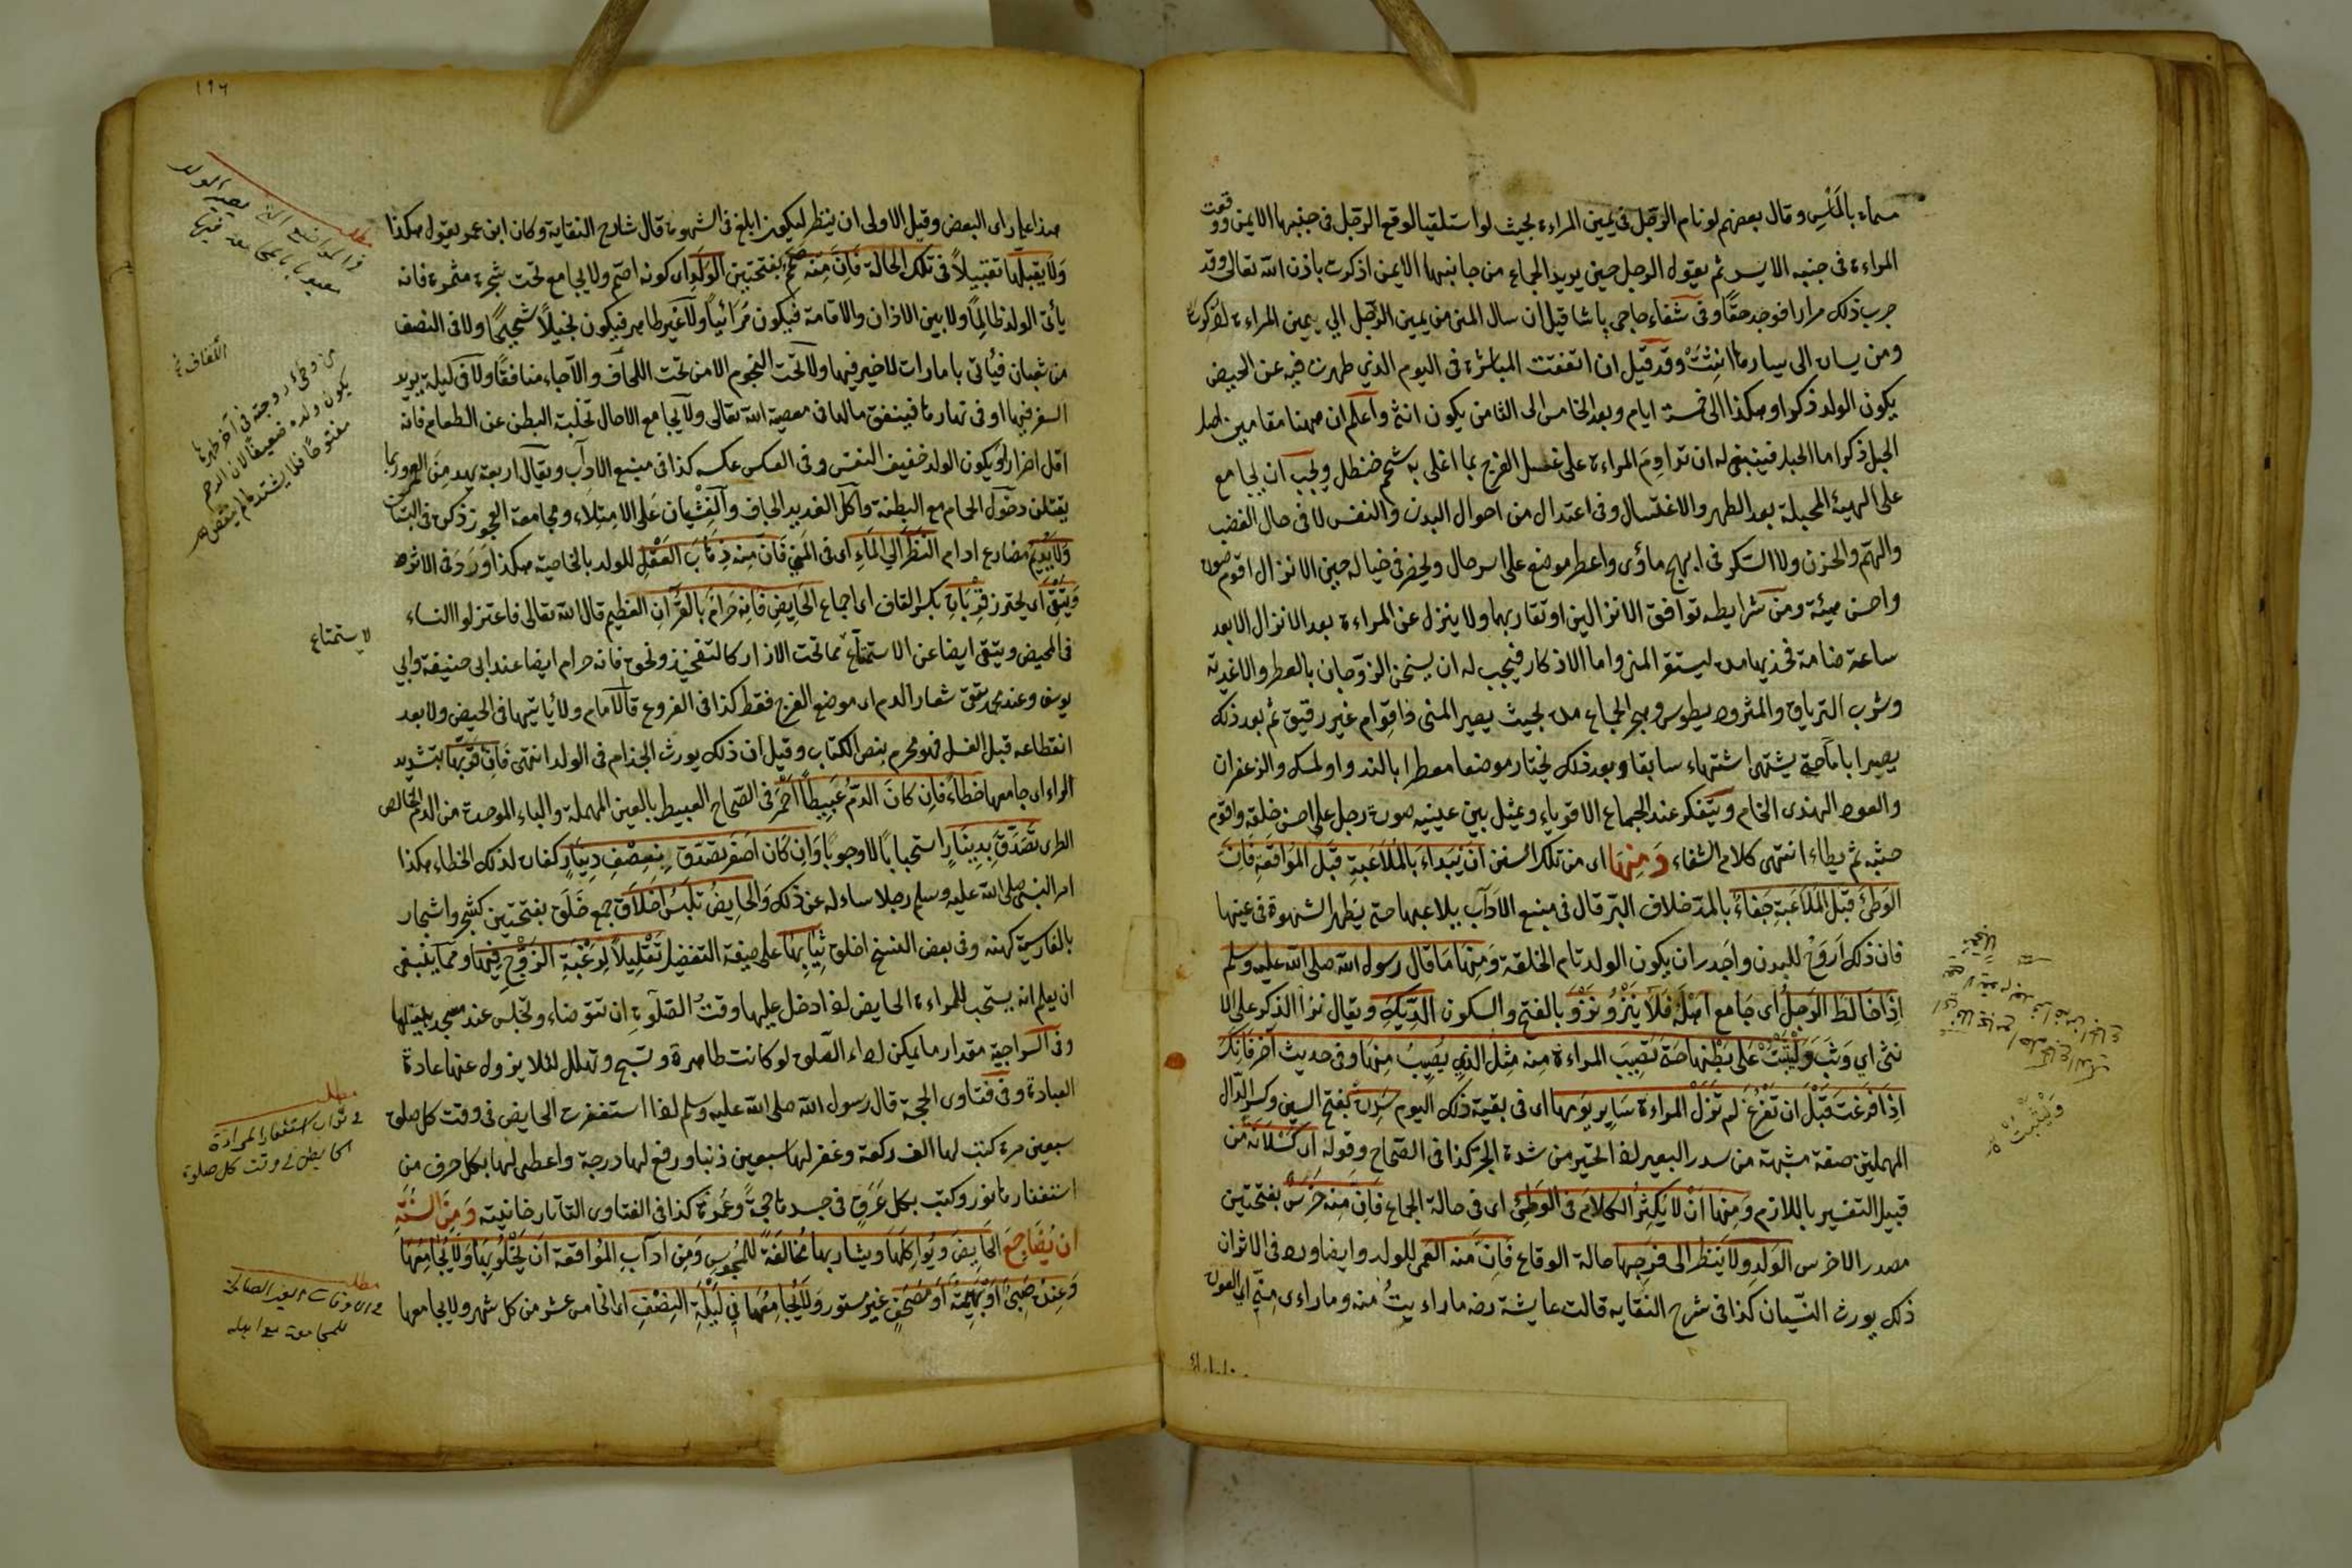 مسماة بالمانس وقال بعضهم لو نام الرجل في يمين المراءة بحيث لو استلقيا لوقع الرجل في جنبها الايمن ووقعت
المراءة في جنبه الايسر ثم يقول الرجل حين يريد الجماع من جانبها الايمن اذكرت باذن الله تعالى وقد
جرب ذلك مرارا فوجد حقا وفي شفاء حاجي باشا قيل ان سال المني من يمين الرجل الي يمين المراءة اذكرت
ومن يساره الى يسارها انثت وقد قيل ان اتفقت المباشرة في اليوم الذي طهرت فيه عن الحيض
يكون الولد ذكرا وهكذا الى خمسة ايام وبعد الخامس الى الثامن يكون انثى واعلم ان ههنا مقامين احبل
الحبل ذكرا اما الحبل فينبغي له ان تداوم المراءة على غسل الفرج بما اغلى به شحم حنظل ويجب ان يجامع
على الهيئة المحبلة بعد الطهر والاغتسال وفي اعتدال من احوال البدن والنفس لا في حال الغضب
والهم والحزن ولا السكر في ابهج مأوى واعطر موضع على اسر حال ويحضر في خياله حين الانزال اقوم صورة
واحسن هيئة ومن شرايطه توافق الانزالين او تقاربهما ولا ينزل عن المراءة بعد الانزال الا بعد
ساعة ضامة فخذيها مدة ليستقر المني واما الاذكار فيجب له ان يسخن الزوجان بالعطر والاغدية
وشرب الترياق والمثروديطوس وهجر الجماع مدة بحيث يصير المني ذا قوام غير رقيق ثم بعد ذلك
يصيرا باماحتى يشتهي اشتهاء سابقا وبعد ذلك يختار موضعا معطرا بالند والمسك والزعفران
والعود الهندي الخام ويتفكر عند الجماع الاقوياء ويمثل بين عينيه صورة رجل على احسن خلقة واقوم
جثة ثم يطاء انتهى كلام الشفاء ومنها اى من تلك السنن ان يبداء بالملاعبة قبل المواقعة فان
الوطئ قبل الملاعبة جفاء بالمد خلاف البر قال في منبع الآداب يلاعبها حتى يظهر الشهوة في عينها
فان ذلك اروح للبدن واجدر ان يكون الولد تام الخلقة ومنها ما قال رسول الله صلى الله عليه وسلم
اذا خالط الرجل اى جامع اهله فلا ينزو نزو بالفتح والسكون الديك ويقال نزا الذكر على الا
نثى اي وثب وليثبت على بطنها حتى تصيب المراءة منه مثل الذي يصيب منها وفي حديث آخر فانك
اذا فرغت قبل ان تفرغ لم تزل المراءة ساير يومها اى في بقية ذلك اليوم سدرة بفتح السين وكسر الدال
المهملتين صفة مشبهة من سدر البعير اذا تحير من شدة الحر كذا في الصحاح وقوله اى كسلانة من
قبيل التفسير باللازم ومنها ان لا يكثر الكلام في الوطئ اى في حالة الجماع فان منه خرس بفتحتين
مصدر الاخرس الولد ولا ينظر الى فرجها حالة الوقاع فان منه العمى للولد وايضا ورد في الاثر ان
ذلك يورث النسيان كذا في شرح النقاية قالت عايشة رضه ما راءيت منه وما راءى مني اي العورة
وليثبت
١٩٦
هذا على راى البعض وقيل الاولى ان ينظر ليكون ابلغ في الشهوة قال شارح النقاية وكان ابن عمر يقول هكذا
ولا يقبلها تقبيلا في تلك الحالة فان منه صمم بفتحتين الولد اى كونه اصم ولا يجامع تحت شجرة مثمرة فانه
يأتى الولد ظالما ولا بين الاذان والاقامة فيكون مرائيا ولا غير طاهر فيكون بخيلا شحيحا ولا في النصف
من شعبان فيأتى بامارات لا خير فيها ولا تحت النجوم الا من تحت اللحاف والا جاء منافقا ولا في ليلة يريد
السفر فيها او في نهارها فينفق ماله في معصية الله تعالى ولا يجامع الا حال تخلية البطن عن الطعام فانه
اقل اضرارا ويكون الولد خفيف النفس وفي العكس عكسه كذا في منبع الآداب ويقال اربعة يهدمن العمر وربما
يقتلن دخول الحمام مع البطنة واكل القديد الجاف والغشيان على الامتلاء ومجامعة العجوز ذكره في البستان
ولا يديم مضارع ادام النظر الي الماء اى في المني فان منه ذهاب العقل للولد بالخاصية هكذا ورد في الاثر
ويتقى اى يحترز قربان بكسر القاف اى جماع الحايض فانه حرام بالقرآن العظيم قال الله تعالى فاعتزلوا النساء
في المحيض ويتقى ايضا عن الاستمتاع مما تحت الازار كالتفخيذ ونحوه فانه حرام ايضا عند ابى حنيفة وابي
يوسف وعند محمد يتقى شعار الدم اى موضع الفرج فقط كذا في الفروع قال الامام ولا يأتيها في الحيض ولا بعد
انقطاعه قبل الغسل فهو محرم بنص الكتاب وقيل ان ذلك يورث الجذام في الولد انتهى فان قربها بتشديد
الراء اى جامعها خطاء فان كان الدم عبيطا احمر في الصحاح العبيط بالعين المهملة والباء الموحدة من الدم الخالص
الطرى تصدق بدينار استحبابا لا وجوبا وان كان اصفر تصدق بنصف دينار كفارة لذلك الخطاء هكذا
امر النبى صلى الله عليه وسلم رجلا ساءله عن ذلك والحايض تلبس اخلاق جمع خلق بفتحتين كشجر واشجار
بالفارسية كهنه وفي بعض النسخ اخلق ثيابها على صيغة التفضيل تقليلا لرغبة الزوج فيها ومما ينبغى
ان يعلم انه يستحب للمراءة الحايض اذا دخل عليها وقت الصلوة ان تتوضاء وتجلس عند مسجد بيتها
وفي السراجية مقدار ما يمكن اداء الصلوة لو كانت طاهرة وتسبح وتهلل لئلا يزول عنها عادة
العبادة وفي فتاوى الحجة قال رسول الله صلى الله عليه وسلم اذا استغفرت الحايض في وقت كل صلوة
سبعين مرة كتب لها الف ركعة وغفر لها سبعين ذنبا ورفع لها درجة واعطى لها بكل حرف من
استغفارها نور وكتب بكل عرق في جسدها حجة وعمرة كذا في الفتاوى التاتارخانية ومن السنة
ان يضاجع الحايض ويواكلها ويشاربها مخالفة للمجوس ومن آداب المواقعة ان يخلو بها ولا يجامعها
وعنده صبى او بهيمة او مصحف غير مستور ولا يجامعها في ليلة النصف اى الخامس عشر من كل شهر ولا يجامعها
مطلب
من وطئ زوجة في آخر طهرها
يكون ولده ضعيفا لان الرحم
لاستمتاع
مطلب
في ثواب استغفار المراءة
الحايض في وقت كل صلوة
مطلب
في الاوقات الغير الصالحة
للمجامعة